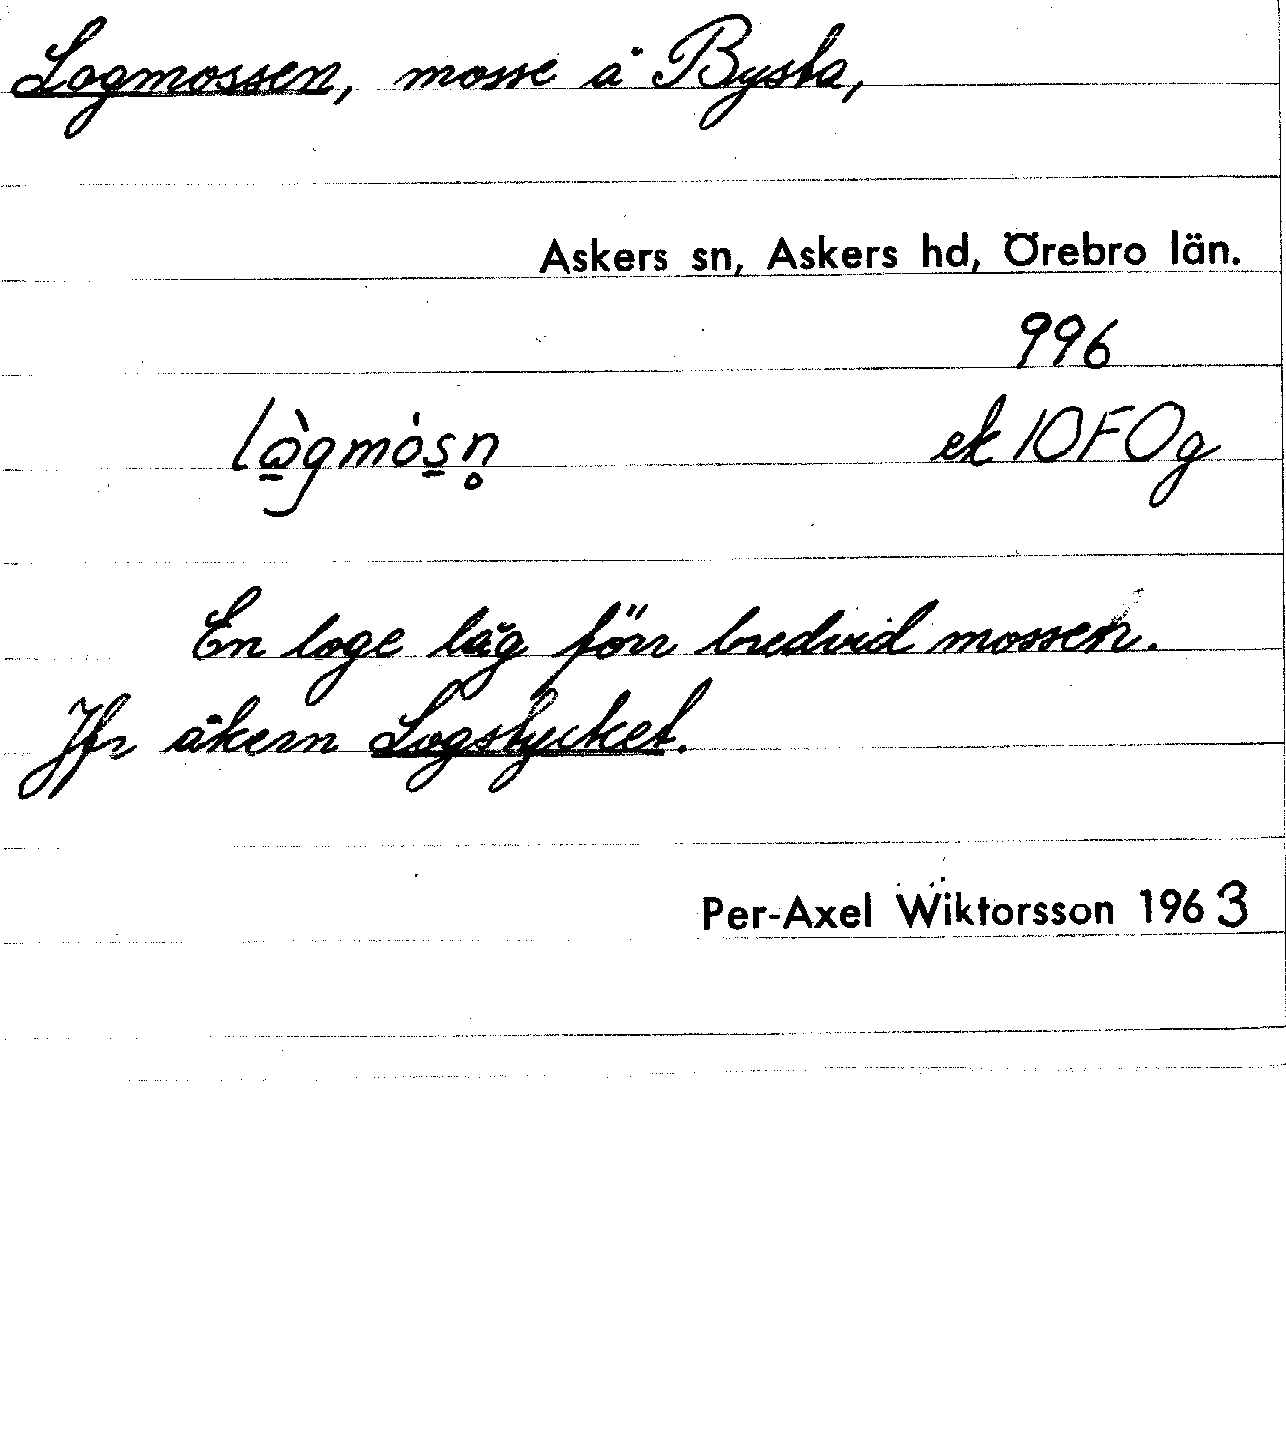 Logmossen, mosse å Bysta,
Askers sn, Askers hd, Örebro län.
996
lò̱gmós̱n̥
ek 10F0g
En loge låg förr bredvid mossen.
Jfr åkern Logstycket.
Per-Axel Wiktorsson 1963